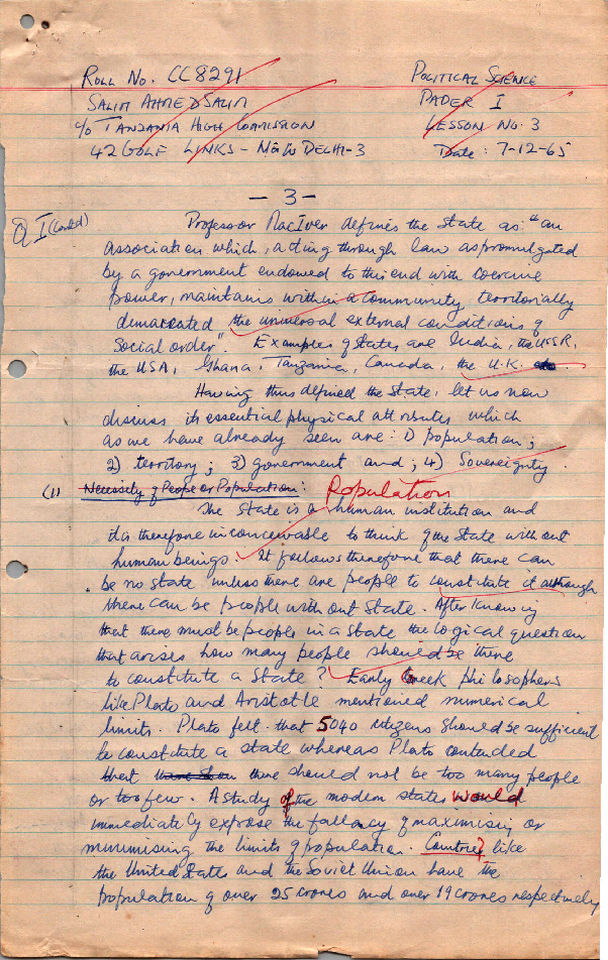 ROLL NO. CC8291
SALIM AHMED SALIM
C/o TANZANIA HIGH COMMISSION
42 GOLF LINKS - NEW DELHI-3
POLITICAL SCIENCE
PAPER I
LESSON NO. 3
Date: 7-12-65
- 3 -
Q I (Contd)
Professor MacIver defines the State as: "an
Association which, acting through law as promulgated
by a government endowed to this end with coercive
power, maintains within a community territorially
demarcated the universal external conditions of
Social order". Examples of States are India, the USSR,
the USA, Ghana, Tanzania, Canada, the U.K.
Having thus defined the State, let us now
discuss its essential physical attributes which
as we have already seen are: 1) population;
2) territory; 3) government and; 4) Sovereignty.
(1) Necessity of People or Population: Population
The State is a human institution and
it is therefore inconceivable to think of the State without
human beings. It follows therefore that there can
be no State unless there are people to constitute it although
there can be people without State. After knowing
that there must be people in a State the logical question
that arises how many people should be there
to constitute a State? Early Greek Philosophers
like Plato and Aristotle mentioned numerical
limits. Plato felt that 5040 citizens should be sufficient
to constitute a state whereas Plato contended
that there should not be too many people
or too few. A study of the modern states would
immediately expose the fallacy of maximising or
minimising the limits of population. Countries like
the United States and the Soviet Union have the
population of over 25 crores and over 19 crores respectively